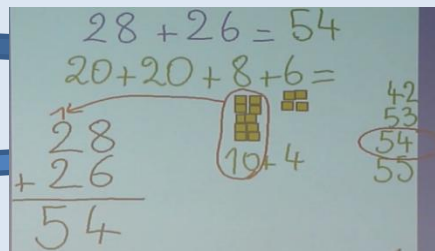 28 + 26 = 54
20+20+8+6=
10+4
1
28
+ 26
54
42
53
54
55